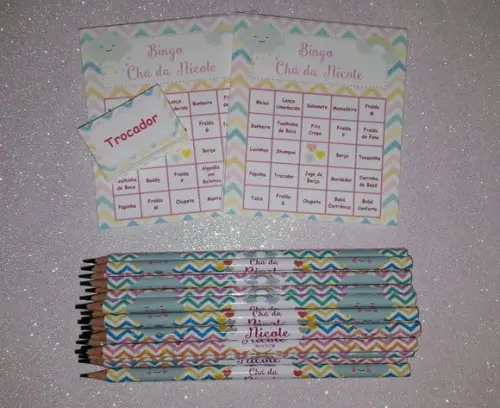 Bingo
Chá da Nicole
Lenço Umedecido
Banheira
Fralda G
Berço
Toalhinha de Boca
Body
Fralda P
Algodão em Bolinhas
Papinha
Fralda M
Chupeta
Trocador
Bingo
Chá da Nicole
Meias
Lenço Umedecido
Sabonete
Mamadeira
Fralda M
Banheira
Toalhinha de Boca
Fita Crepe
Fralda P
Fralda de Pano
Luvinhas
Shampoo
Berço
Touquinha
Papinha
Trocador
Jogo de Berço
Mordedor
Carrinho de Bebê
Talco
Fralda G
Chupeta
Babá Eletrônica
Bebê Conforto
Chá da
Chá da
Nicole
Chá da